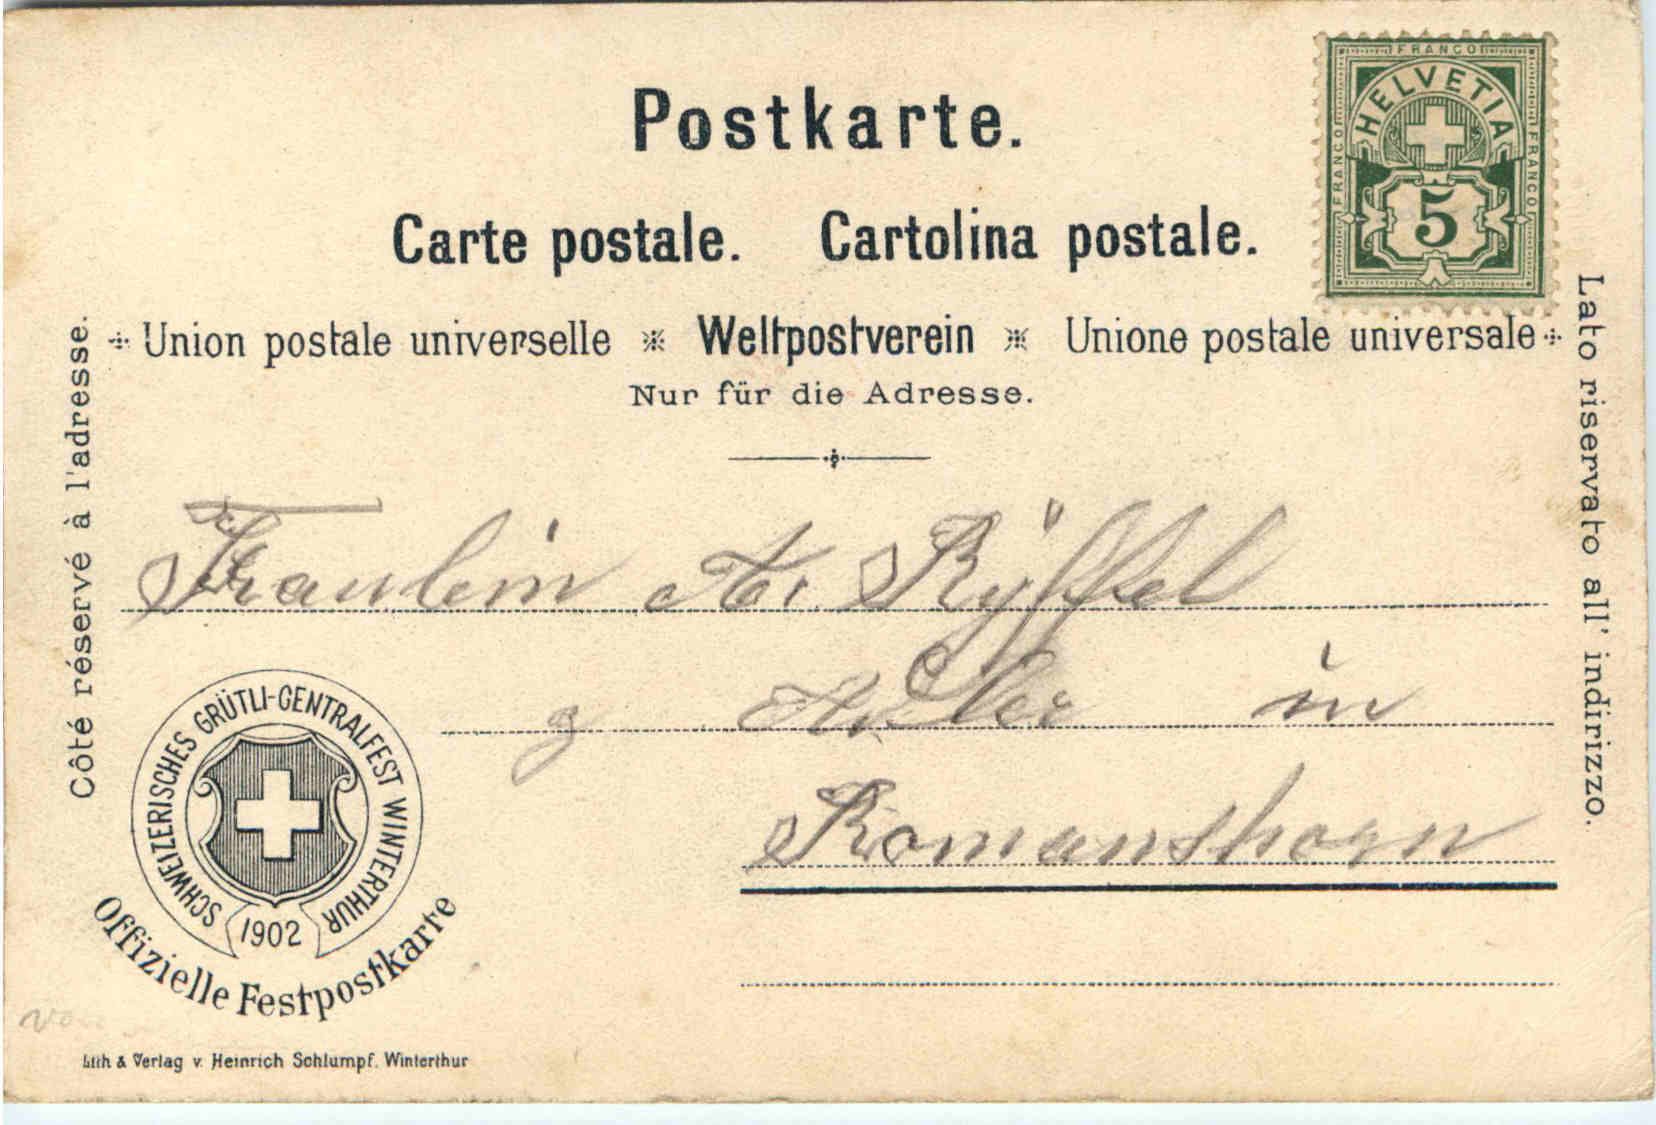 Postkarte.
Carte postale. Cartolina postale.
Union postale universelle Weltpostverein Unione postale universale
Nur für die Adresse.
FRANCO
HELVETIA
FRANCO
FRANCO
5
Côté réservé à l'adresse.
Lato riservato all' indirizzo.
Fraulein A. Ryffel
z Adler in
Romanshorn
SCHWEIZERISCHES GRÜTLI-CENTRALFEST WINTERTHUR
1902
Offizielle Festpostkarte
Lith & Verlag v. Heinrich Schlumpf. Winterthur